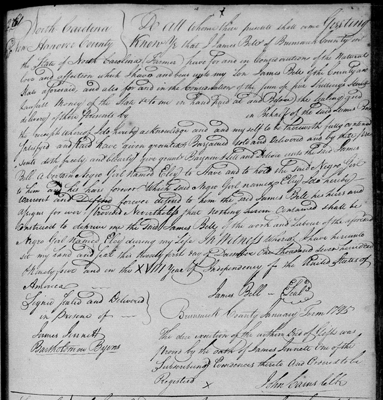 North Carolina
New Hanover County
To all whom these presents shall come Greeting
Know Ye that I James Bell of Brunswick County in
the State of North Carolina Farmer, for and in Consideration of the Natural
love and affection which I have and bear unto my Son James Bell of the County and
State aforesaid and also for and in the Consideration of the Sum of five Shillings
Money of the State to me in hand paid at and before the
delivery of these presents by in behalf of the said James Bell
the receipt whereof I do hereby acknowledge and my self to be therewith fully
Satisfied and paid have given granted Bargained Sold and delivered and by these
presents doth freely and absolutely give grant Bargain Sell and deliver unto the said James
Bell a certain Negro Girl Named Elcy To have and to hold the said Negro Girl
to him and his heirs forever which said Negro Girl named Elcy I do hereby
warrant and forever defend to him the said James Bell his heirs and
assigns for ever Provided Nevertheless that nothing herein Contained shall be
Construed to deprive me the said James Bell of the work and labour of the aforesaid
Negro Girl Named Elcy during my life In Witness whereof I have hereunto
set my hand and seal this twenty first day of December One Thousand Seven hundred and
Ninety four and in the XVIII year of Independency of the United States of
America
Signed Sealed and Delivered
in presence of
James Bell Seal
James Jennett
Bartholomew Byons
Brunswick County January Term 1795
The due execution of the within Deed of Gift was
proven by the oath of James Jennett One of the
Subscribing Evidences thereto and Ordered to be
Registered
John Cains Clk